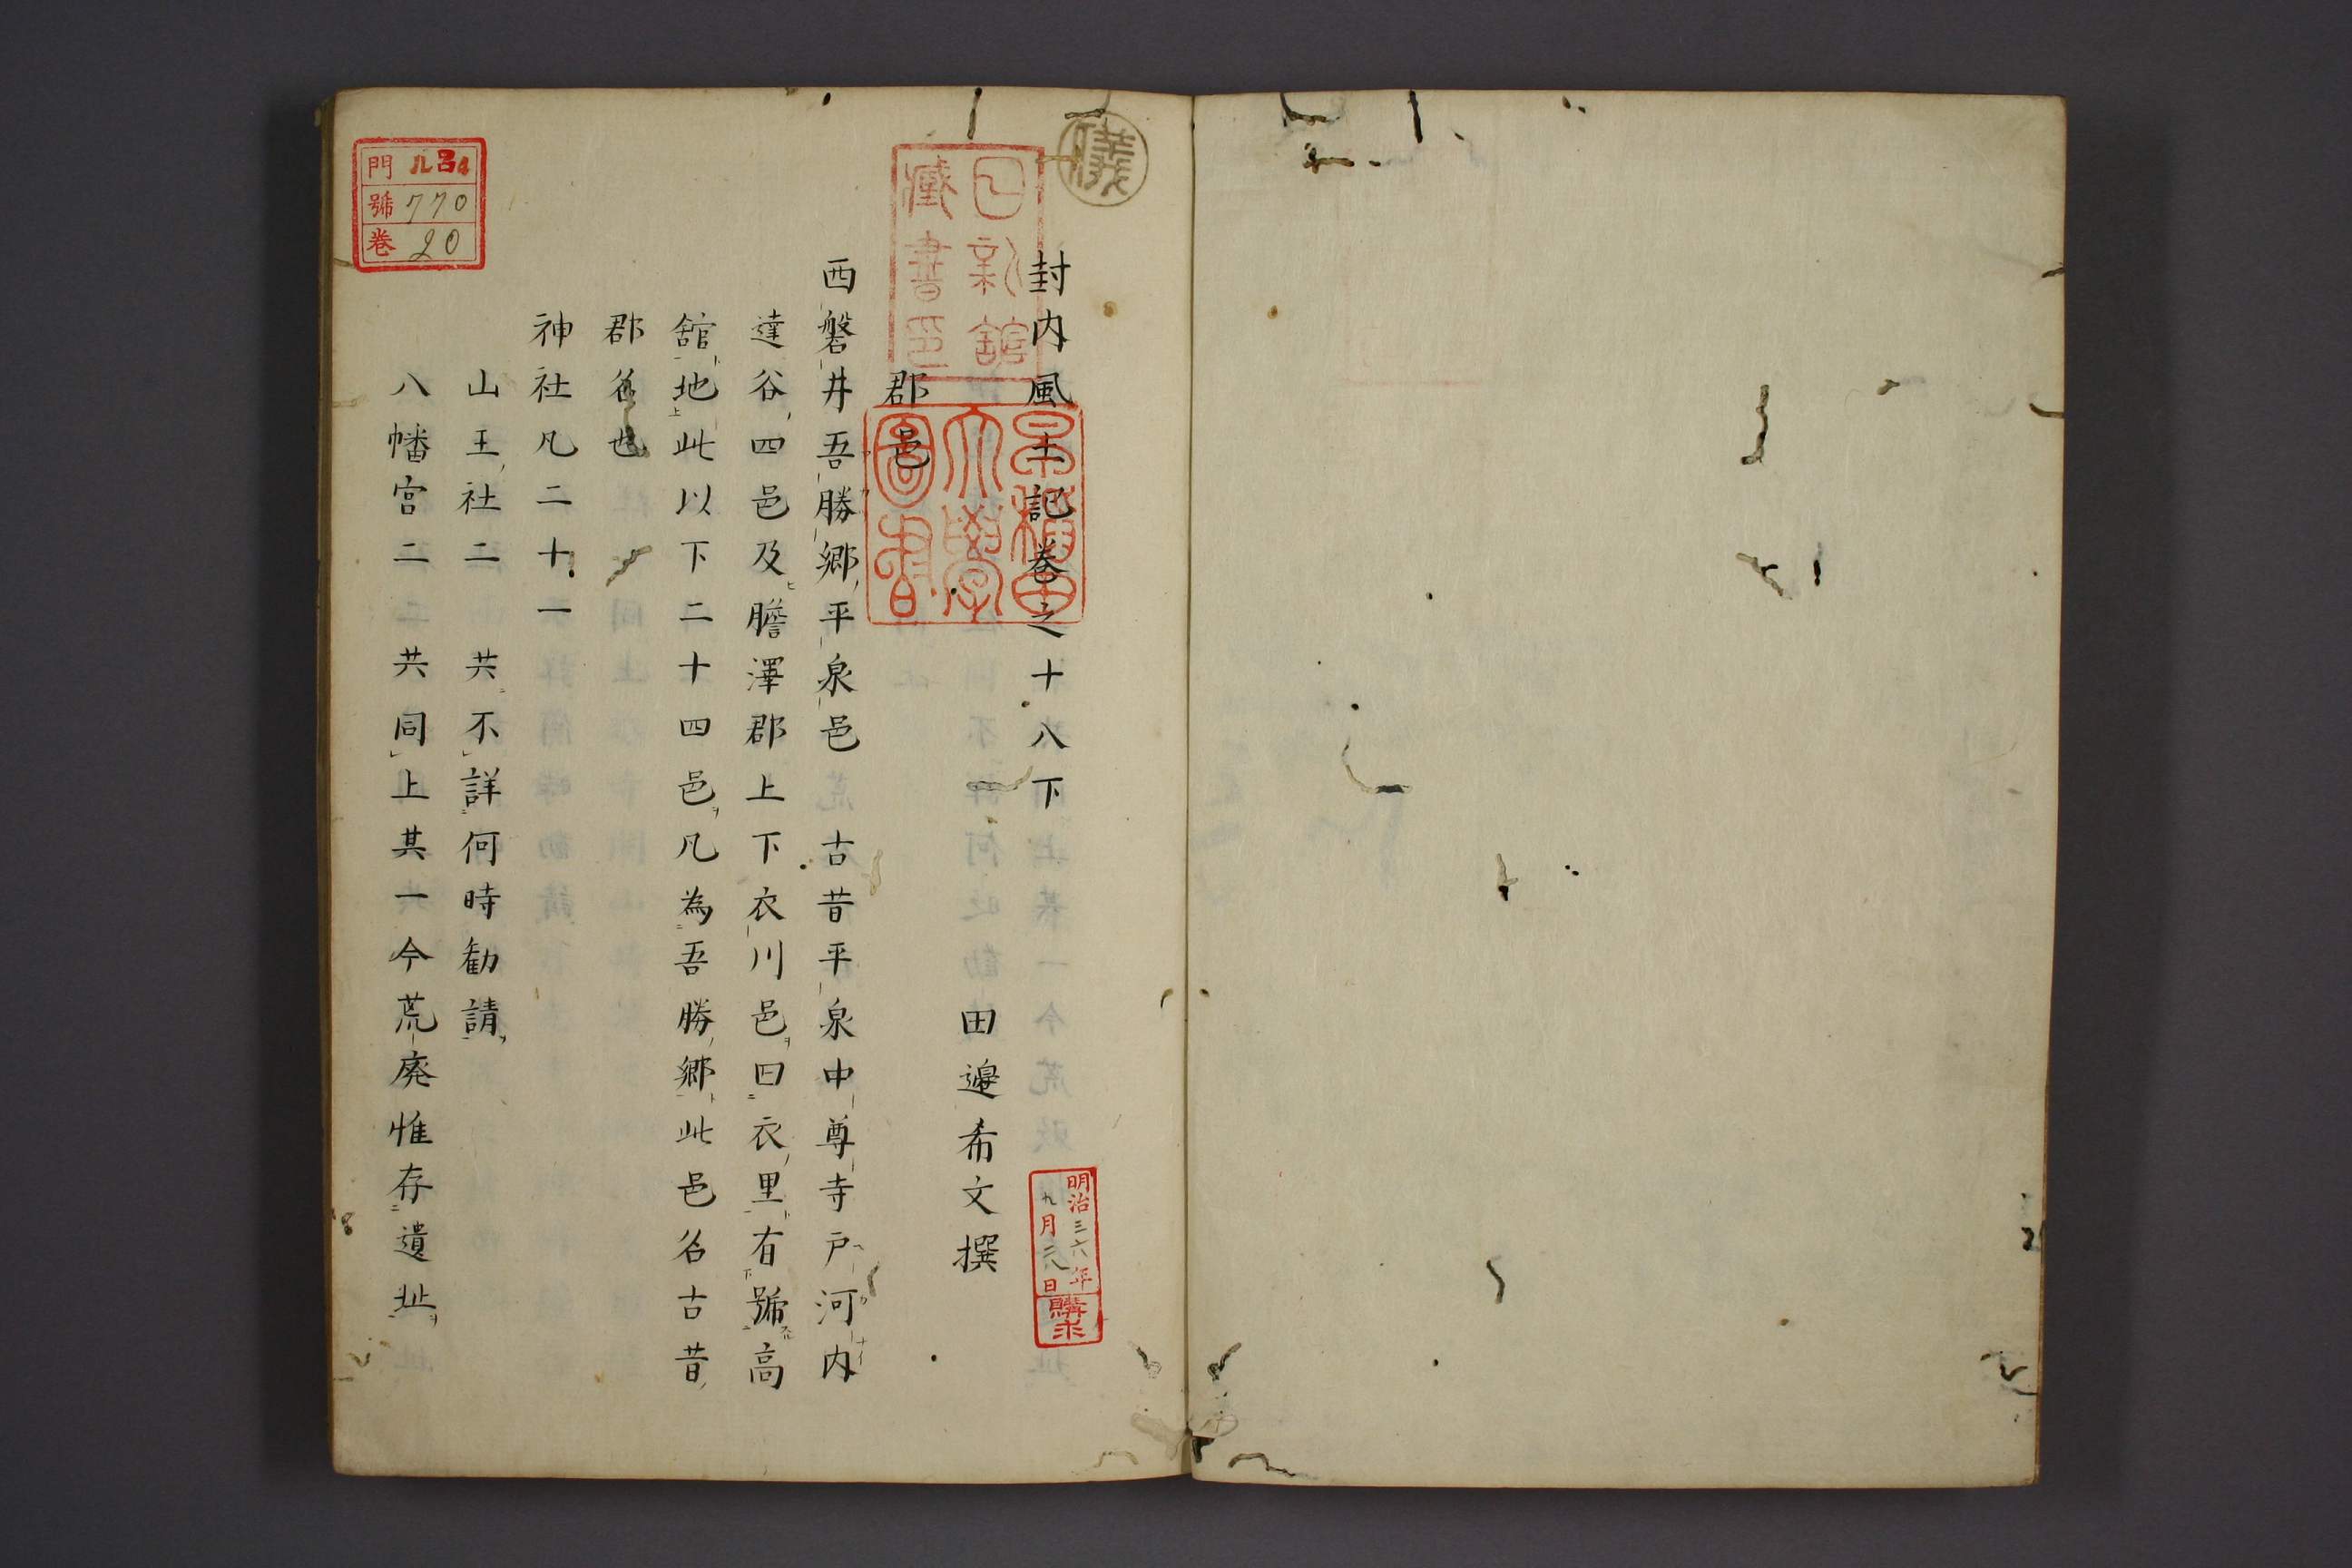 封内風土記巻之十八下
田邉希文撰
郡邑
西磐井吾勝郷平泉邑 古昔平泉中尊寺戸河内
達谷四邑及膽澤郡上下衣川邑曰衣里有號高
舘地此以下二十四邑凡為吾勝郷此邑名古昔
郡名也
神社凡二十一
山王社二 共不詳何時勧請
八幡宮二 共同上其一今荒廃惟存遺址
早稲田大學圖書
日新舘蔵書印
明治三六年
九月二八日
購求
門 ル4
號 770
巻 20